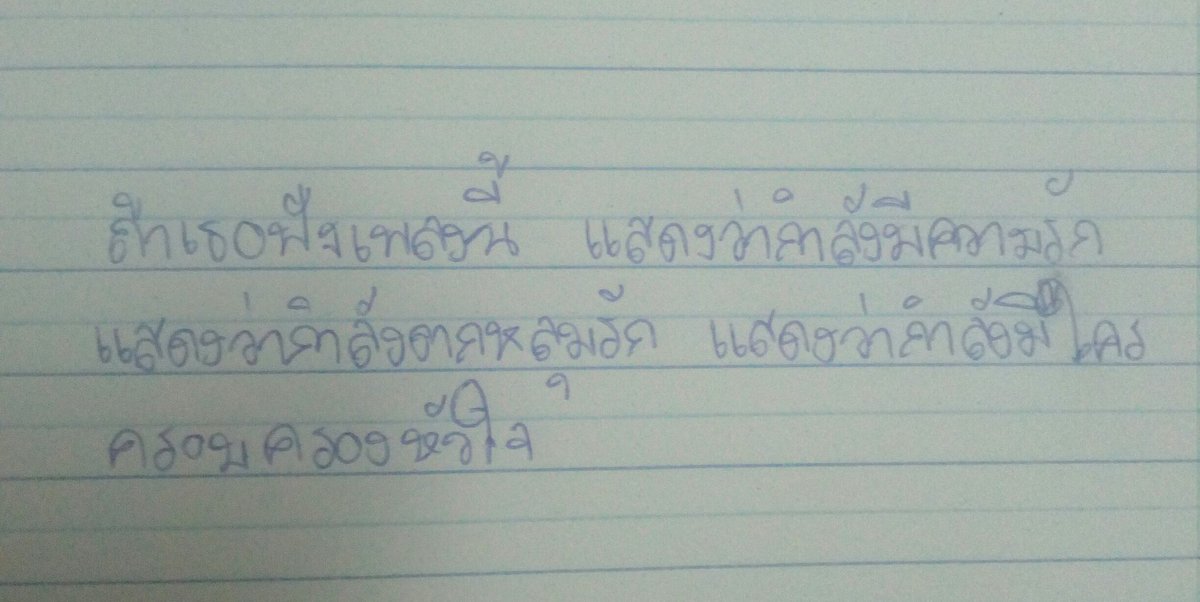 ถ้าเธอฟังเพลงนี้ แสดงว่ากำลังมีความรัก
แสดงว่ากำลังตกหลุมรัก แสดงว่ากำลังมีใคร
ครอบครองหัวใจ